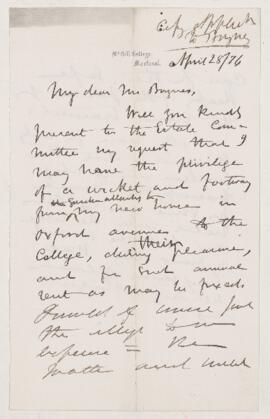 April 28/76
McGill College
Montreal
My dear Mr Baynes,
Will you kindly
present to the Estate Com-
mittee my request that I
may have the privilege
of a wicket and footway
from my new house in
Oxford avenue to the
College, during their pleasure,
and for such annual
rent as may be fixed.
I would of course put
the
expense
matter and